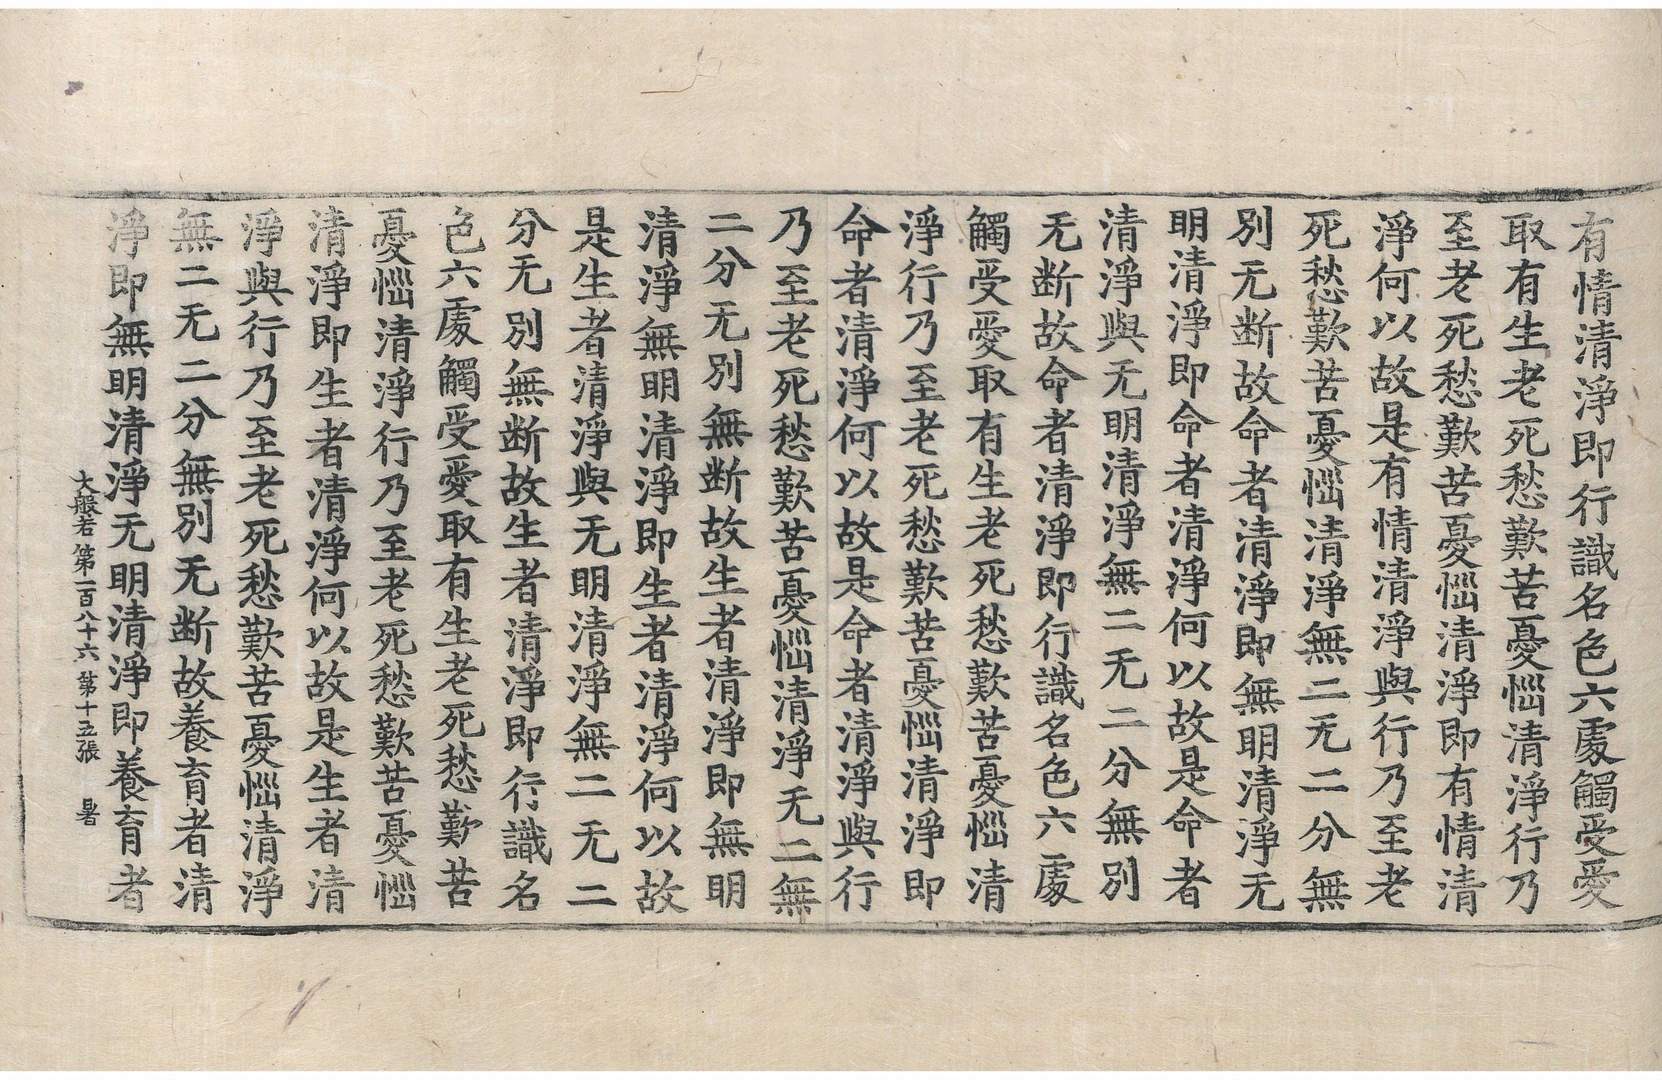 有情清淨即行識名色六處觸受愛
取有生老死愁歎苦憂惱清淨行乃
至老死愁歎苦憂惱清淨即有情清
淨何以故是有情清淨與行乃至老
死愁歎苦憂惱清淨無二无二分無
別无断故命者清淨即無明清淨无
明清淨即命者清淨何以故是命者
清淨與无明清淨無二无二分無別
无断故命者清淨即行識名色六處
觸受愛取有生老死愁歎苦憂惱清
淨行乃至老死愁歎苦憂惱清淨即
命者清淨何以故是命者清淨與行
乃至老死愁歎苦憂惱清淨无二無
二分无別無断故生者清淨即無明
清淨無明清淨即生者清淨何以故
是生者清淨與无明清淨無二无二
分无別無断故生者清淨即行識名
色六處觸受愛取有生老死愁歎苦
憂惱清淨行乃至老死愁歎苦憂惱
清淨即生者清淨何以故是生者清
淨與行乃至老死愁歎苦憂惱清淨
無二无二分無別无断故養育者清
淨即無明清淨无明清淨即養育者
大般若第一百八十六 第十五張 暑